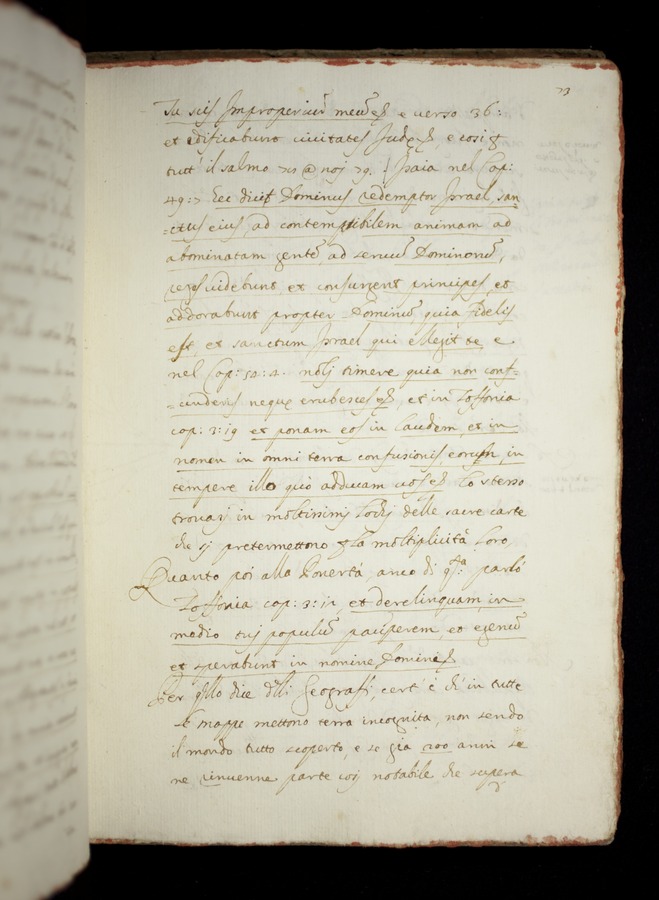 73
Tu scis Improperium meum etc e verso 36:
et edificabunt civitates Judę etc, e così
tutt'il salmo @ noj 79. Isaia nel Cap:
49:7 Hec dicit Dominus redemptor Israel, san
=ctus eius, ad contemptibilem animam ad
abominatam gentem, ad servum Dominorum,
reges videbunt, et consurgent principes, et
addorabunt propter Dominum, quia fidelis
est, et sanctum Israel qui elegit te, e
nel Cap: 54:4. nolj timere quia non conf=
=underis neque erubesces etc, et in Zoffonia
cap: 3:19 et ponam eos in laudem, et in
nomen in omni terra confusionis eorum, in
tempore illo quo adducam vos etc lo stesso
trovasi in moltissimj lochj delle sacre carte
che si pretermettono p la moltiplicità loro,
Quanto poi alla Povertà, anco di qsta parlò
Zoffonia cap: 3:12, et derelinquam, in
medio tuj populum pauperem, et egenum
et sperabunt in nomine Domine etc
Per qllo dice dlli Geografi, cert'è ch'in tutte
le mappe mettono terra incognita, non sendo
il mondo tutto scoperto, e se già 200 anni se
ne rinvenne parte così notabile che supera